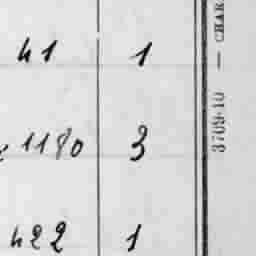 41 1
1180 3
422 1
3709-10 — CHAR